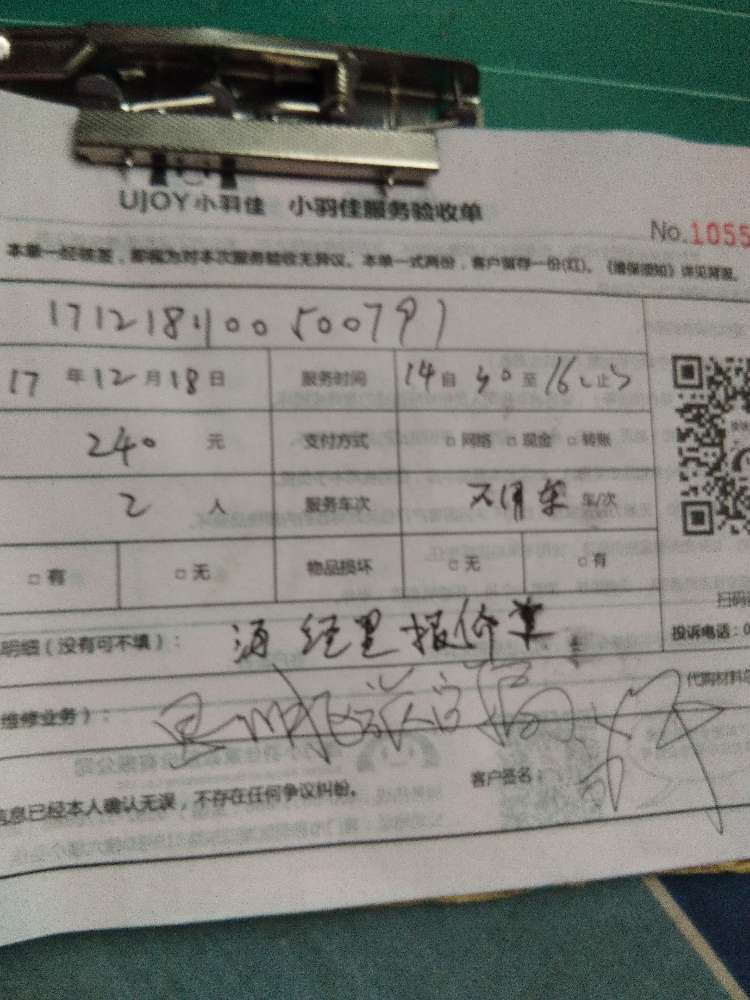 UJOY小羽佳 小羽佳服务验收单
No.1055
本单一经核签，即视为对本次服务验收无异议。本单一式两份，客户留存一份(红)。《维保须知》详见背面。
17 年 12 月 18 日 服务时间 14 自 40 至 16 止
240 元 支付方式 □网络 □现金 □转账
2 人 服务车次 不用车 车/次
□有 □无 物品损坏 □无 □有
扫码
明细（没有可不填）： 经里报价单 投诉电话：0
维修业务）： 代购材料总
客户签名：
信息已经本人确认无误，不存在任何争议纠纷。